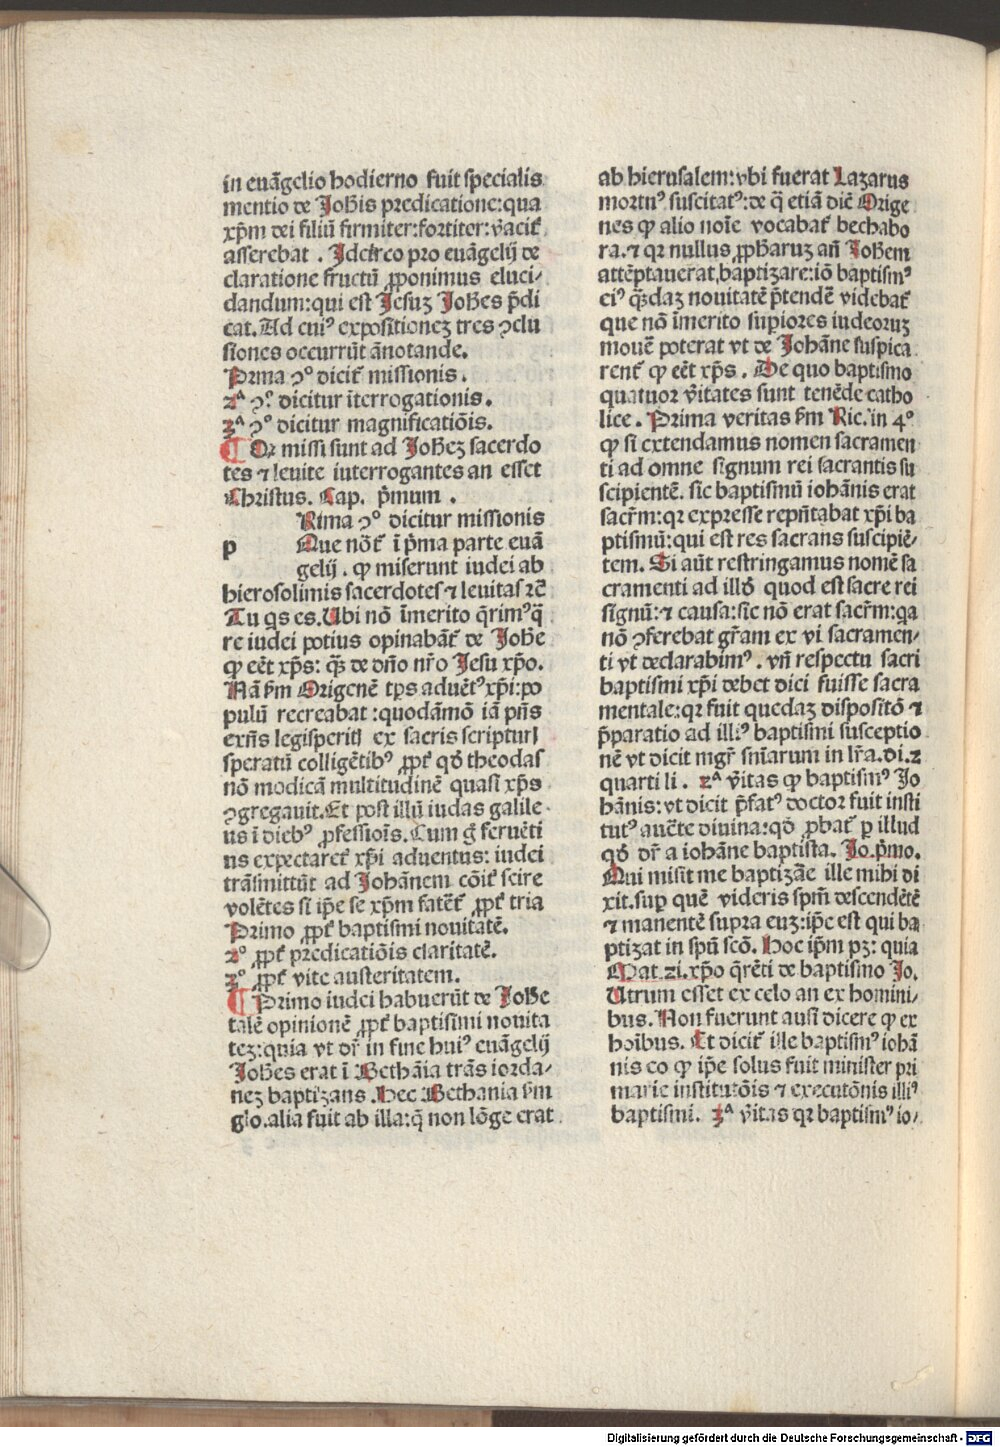 in euāgelio hodierno fuit specialis
mentio de Joħis predicatione: qua
xp̄m dei filiū firmiter: fortiter: v̄acit᷑
asserebat . Jdcirco pro euāgelij de
claratione fructū ꝓponimus eluci⸗
dandum: qui est Jesuz Joħes p̄di
cat. Ad cuiꝰ expositionez tres ↄclu
siones occurrūt ānotande.
Prima ↄͦ dicit᷑ missionis .
2ᵃ ↄͦ dicitur īterrogationis .
3ᵃ ↄͦ dicitur magnificatiōis.
¶ Or missi sunt ad Joħez sacerdo
tes ⁊ leuite interrogantes an esset
Christus. Cap. p̄mum .
Rima ↄͦ dicitur missionis
p Que nōt᷑ ī p̄ma parte euā
gelij . ꝙ miserunt iudei ab
hierosolimis sacerdotes ⁊ leuitas ⁊c̄
Tu q̄s es. Ubi nō īmerito q̄rimꝰ q̄
re iudei potius opinabāt᷑ de Joħe
ꝙ eēt xp̄s: q̄ȝ de dn̄o nr̄o Jesu xp̄o.
Nā ẜm Origenē tp̄s aduētꝰ xp̄i: po
pulū recreabat : quodāmō iā pn̄s
exn̄s legisperitꝭ ex sacris scripturꝭ
speratū colligētibꝰ ꝓpt᷑ qd̄ theodas
nō modicā multitudinē quasi xp̄s
ↄgregauit. Et post illū iudas galile⸗
us ī diebꝰ ꝓfessiōis. Cum g̊ feruēti
us expectaret᷑ xp̄i aduentus: iudei
trāsmittūt ad Johānem cōit᷑ scire
volētes si ip̄e se xp̄m fatēt᷑ ꝓpt᷑ tria
Primo ꝓpt᷑ baptismi nouitatē.
2ͦ ꝓpt᷑ predicatiōis claritatē.
3ͦ ꝓpt᷑ vite austeritatem.
¶ Primo iudei habuerūt de Joħe
talē opinionē ꝓpt᷑ baptisimi nouita
tez: quia vt dr̄ in fine huiꝰ euāgelij
Joħes erat ī Bethāia trās iorda⸗
nez baptizans . Hec Bethania ẜm
glo. alia fuit ab illa: q̄ non lōge erat
ab hierusalem: vbi fuerat Lazarus
mortuꝰ suscitatꝰ: de q̄ etiā diē Orige
nes ꝙ alio noīe vocabat᷑ bethabo
ra. ⁊ qꝛ nullus ꝓph̄aruz an̄ Joħem
attēptauerat baptizare: iō baptismꝰ
eiꝰ q̄ȝdaz nouitatē p̄tendē videbat᷑
que nō īmerito sup̄iores iudeoruz
mouē poterat vt de Johāne suspica
rent᷑ ꝙ eēt xp̄s . De quo baptismo
quatuor v̄itates sunt tenēde catho
lice . Prima veritas ẜm Ric. in 4ͦ
ꝙ si extendamus nomen sacramen
ti ad omne signum rei sacrantis su
scipientē. sic baptismū iohānis erat
sacr̄m: qꝛ expresse repn̄tabat xp̄i ba
ptismū: qui est res sacrans suscipiē⸗
tem. Si aūt restringamus nomē sa
cramenti ad illd̄ quod est sacre rei
signū: ⁊ causa: sic nō erat sacr̄m: qa
nō ↄferebat gr̄am ex vi sacramen⸗
ti vt declarabimꝰ . vn̄ respectu sacri
baptismi xp̄i debet dici fuisse sacra
mentale: qꝛ fuit quedaz dispositō ⁊
p̄paratio ad illiꝰ baptismi susceptio
nē vt dicit mgr̄ sn̄iarum in lr̄a. di. 2
quarti li . 2ᵃ v̄itas ꝙ baptismꝰ Jo
hānis: vt dicit p̄fatꝰ doctor fuit insti
tutꝰ auēte diuina: qd̄ ꝓbat᷑ ꝑ illud
qd̄ dr̄ a iohāne baptista. Jo. p̄mo.
Qui misit me baptizāe ille mihi di
xit. sup̄ quē videris sp̄m descendētē
⁊ manentē supra euz: ip̄e est qui ba
ptizat in spū scō. Hoc ip̄m pȝ: quia
Mat. 21. xp̄o q̄rēti de baptismo Jo.
Utrum esset ex celo an ex homini⸗
bus. Non fuerunt ausi dicere ꝙ ex
hoībus. Et dicit᷑ ille baptismꝰ iohā
nis eo ꝙ ip̄e solus fuit minister pri
marie institutōis ⁊ executōnis illiꝰ
baptismi. 3ᵃ v̄itas qꝛ baptismꝰ io⸗
Digitalisierung gefördert durch die Deutsche Forschungsgemeinschaft - DFG